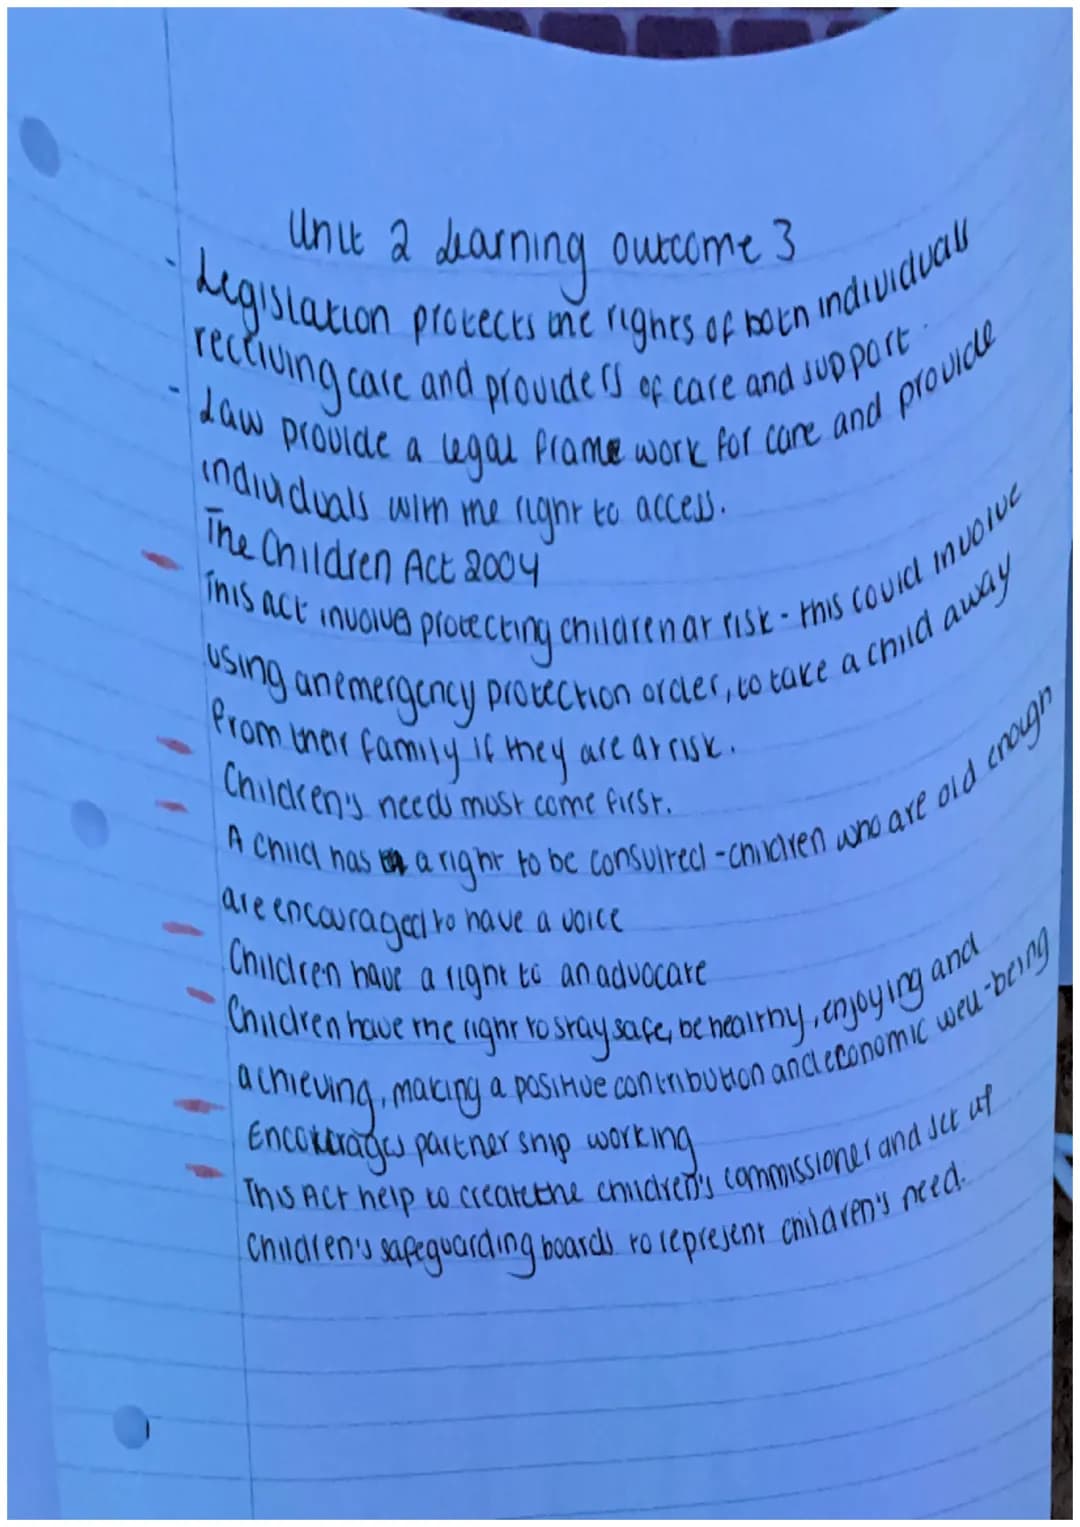 Unit 2 Learning outcome 3
- Legislation protects the rights of both individuals
receiving care and providers of care and support.
- Law provide a legal frame work for care and provide
individuals with the right to access.
The Children Act 2004
- This act involves protecting children at risk - this could involve
using an emergency protection order, to take a child away
from their family if they are at risk.
- Children's needs must come first.
- A child has a right to be consulted - children who are old enough
are encouraged to have a voice
- Children have a right to an advocate
- Children have the right to stay safe, be healthy, enjoying and
achieving, making a positive contribution and economic well-being
- Encourages partner ship working
- This Act help to create the children's commissioner and set up
children's safeguarding boards to represent children's need.